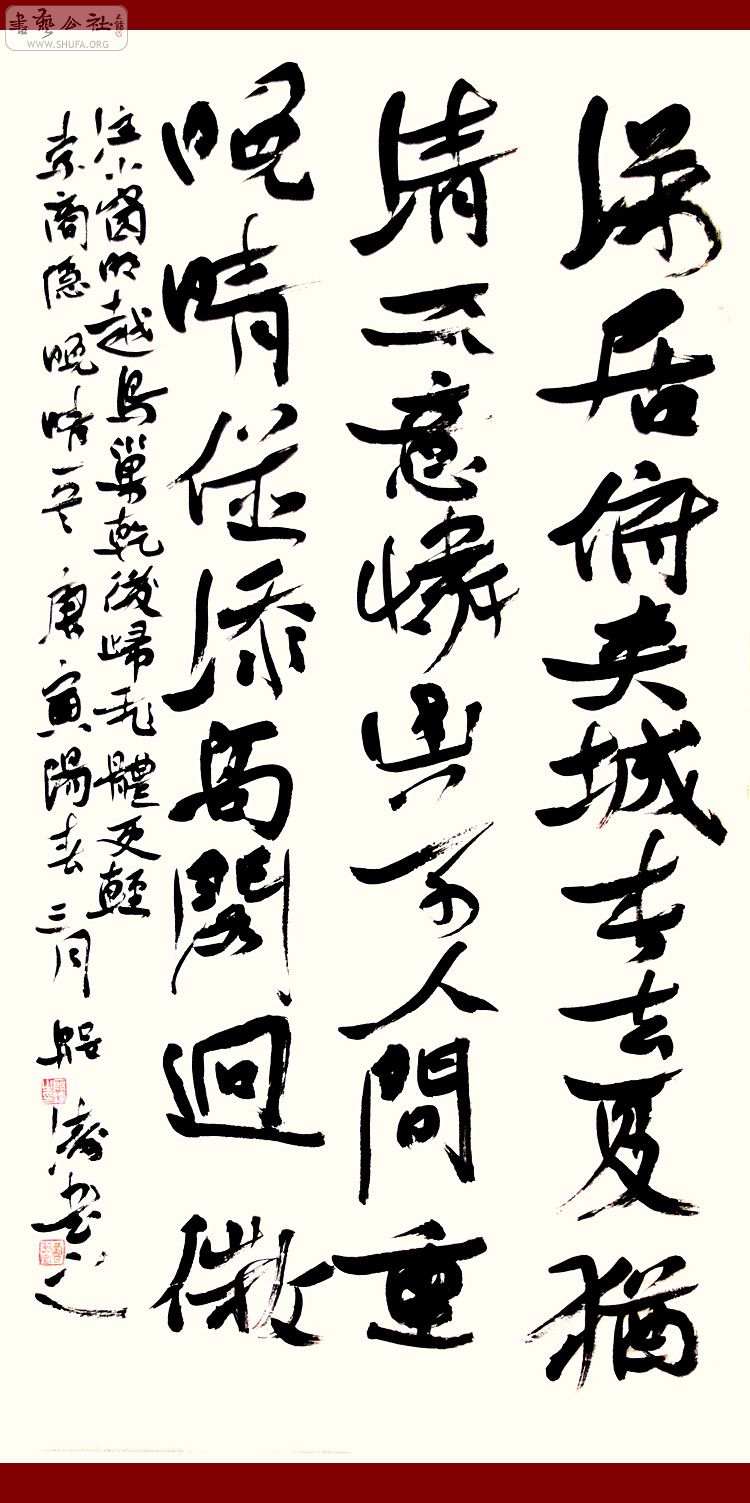 書藝公社
WWW.SHUFA.ORG
深居俯夹城春去夏猶
清天意憐幽草人間重
晚晴併添高閣迥微
注小窗明越鳥巢乾後歸飛體更輕
李商隐晚晴一首庚寅陽春三月濤書之